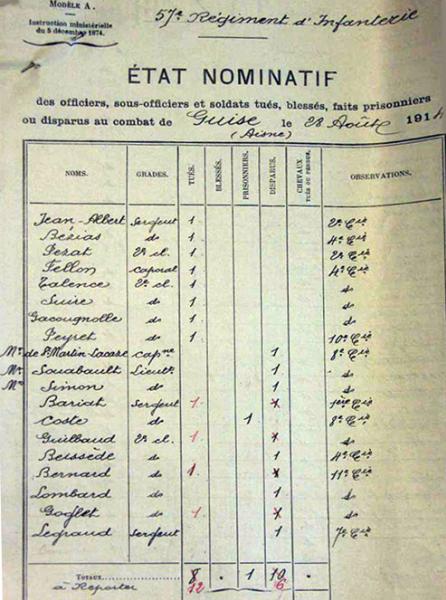 MODÈLE A.
Instruction ministérielle
du 5 décembre 1874.
57e Régiment d'Infanterie
ÉTAT NOMINATIF
des officiers, sous-officiers et soldats tués, blessés, faits prisonniers
ou disparus au combat de Guise le 28 Août 1914
(Aisne)
NOMS. GRADES. TUÉS. BLESSÉS. PRISONNIERS. DISPARUS. CHEVAUX TUÉS OU PERDUS. OBSERVATIONS.
Jean-Albert Sergent 1 2e Cie
Bézias do 1 4e Cie
Pezat 2e cl. 1 2e Cie
Fellon caporal 1 4e Cie
Talence 2e cl. 1 do
Suire do 1 do
Gacougnolle do 1 do
Peyret do 1 10e Cie
Mr de St Martin-Lacaze capne 1 8e Cie
Mr Souabault Lieutt 1 do
Mr Simon do 1 do
Bariat Sergent 1 1 1ère Cie
Coste do 1 8e Cie
Guilbaud 2e cl. 1 1 do
Beissède do 1 4e Cie
Bernard do 1 1 11e Cie
Lombard do 1 do
Goglet do 1 1 do
Legraud Sergent 1 7e Cie
TOTAUX 8 . 1 10 .
à Reporter 12 6